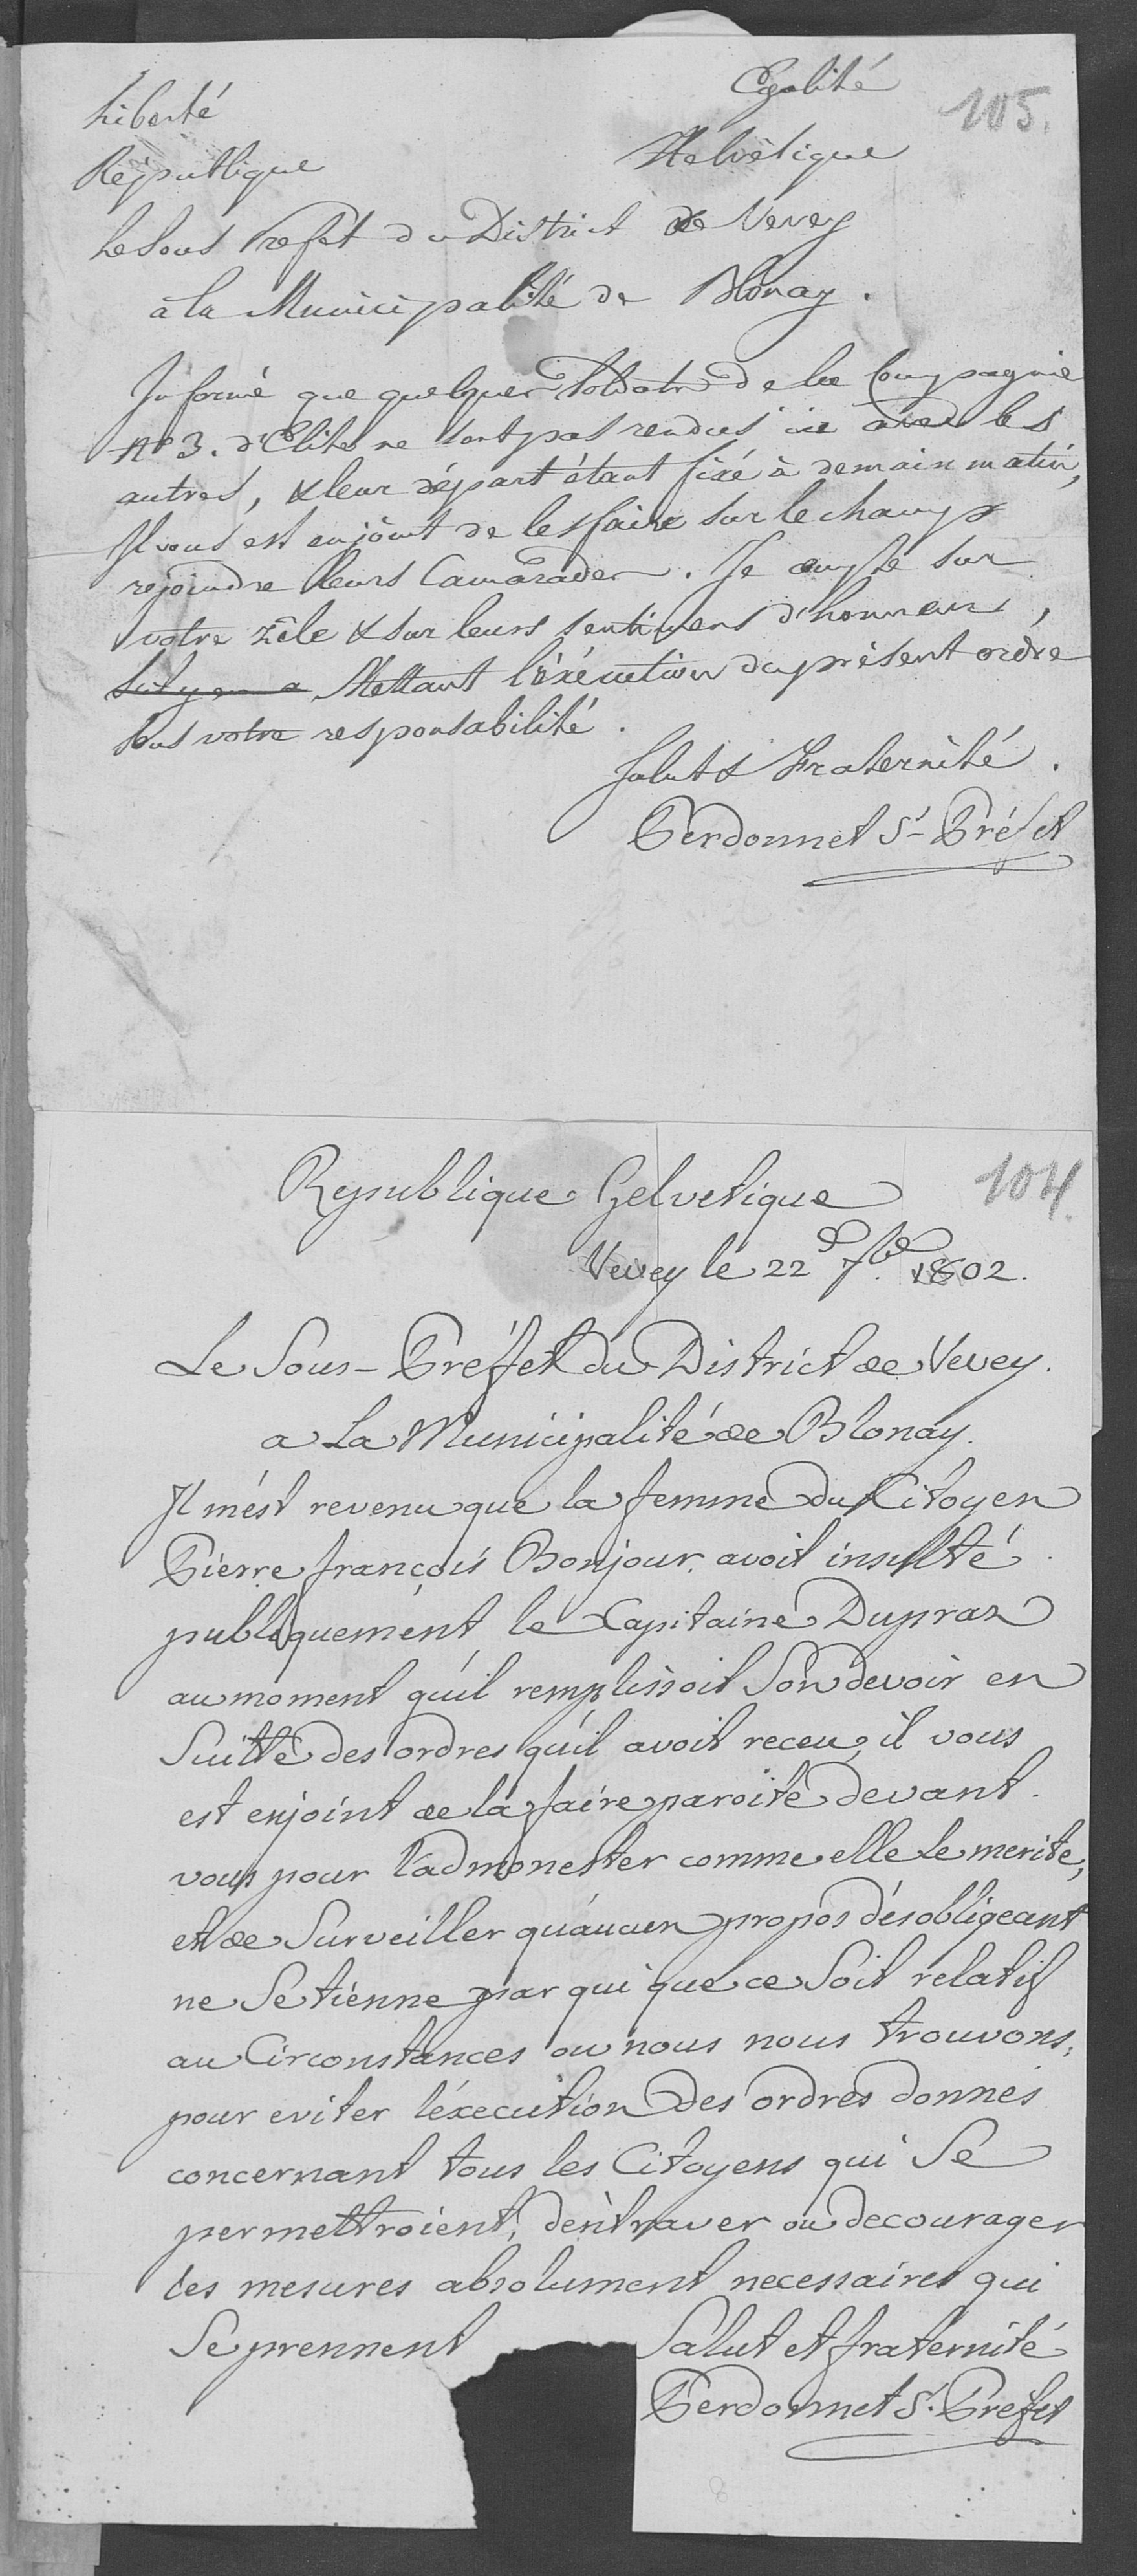 105.
Liberté Egalité
République Helvétique
Le Sous Prefet du District de Vevey
à la Municipalité de Blonay.
Informé que quelques Soldats de la Compagnie
N° 3. d'Elite ne sont pas rendus ici avec les
autres, & leur départ étant fixé à demain matin,
Il vous est enjoint de les faire sur le champ
rejoindre leurs Camarades. Je compte sur
votre zèle & sur leurs sentimens d'honneur,
Mettant l'éxécution du présent ordre
sous votre responsabilité.
Salut & Fraternité.
Perdonnet S.s Préfet
104.
Republique Helvetique
Vevey le 22e 7bre 1802.
Le Sous-Préffet du District de Vevey.
a La Municipalité de Blonay.
Il m'ést revenu que la femme du Citoyen
Pierre françois Bonjour, avoit insulté
publiquement le Capitaine Dupraz
au moment qu'il remplissoit Son devoir en
Suitte des ordres qu'il avoit receu, il vous
est enjoint de la faire paroitë devant
vous pour l'admonester comme elle Le merite,
et de Surveiller qu'aucun propos désobligeant
ne Se tienne par qui que ce Soit relatif
au Circonstances ou nous nous trouvons,
pour eviter l'éxecution des ordres donnés
concernant tous les Citoyens qui Se
permettroient, d'entraver ou decourager
les mesures absolument necessaires qui
Se prennent Salut et fraternité
Perdonnet S.s Prefet